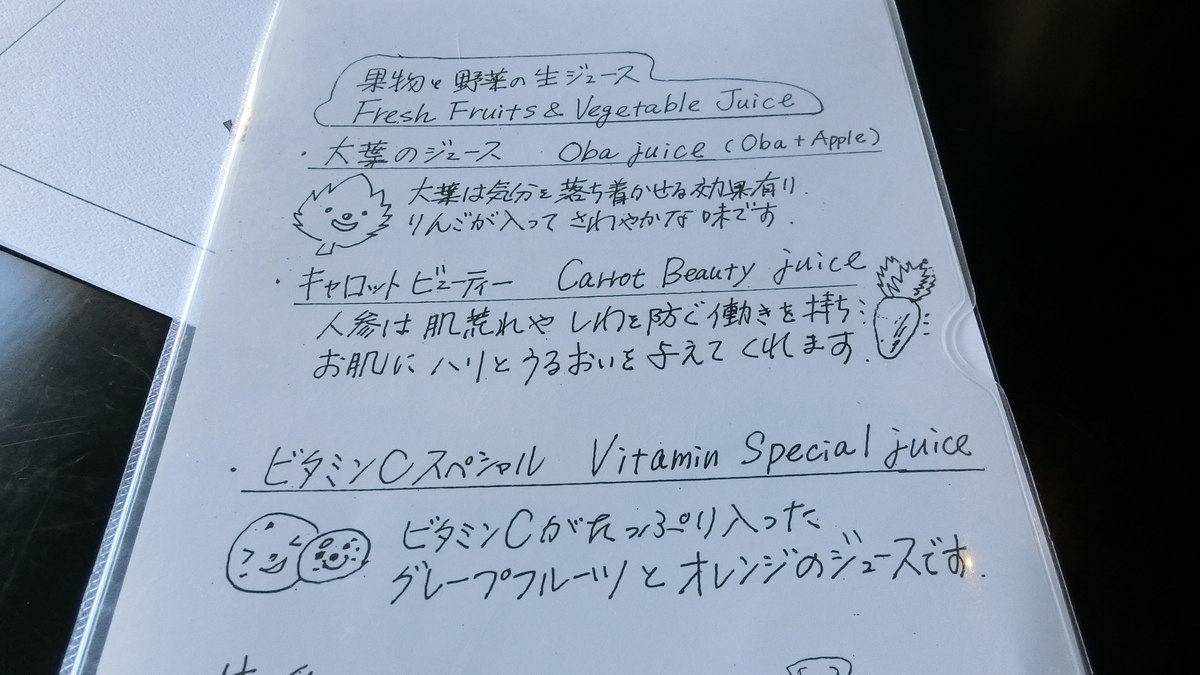 果物と野菜の生ジュース
Fresh Fruits & Vegetable Juice
・大葉のジュース Oba juice (Oba + Apple)
大葉は気分を落ち着かせる効果有り.
りんごが入ってさわやかな味です.
・キャロットビューティー Carrot Beauty juice
人参は肌荒れやしわを防ぐ働きを持ち
お肌にハリとうるおいを与えてくれます.
・ビタミンCスペシャル Vitamin Special juice
ビタミンCがたっぷり入った
グレープフルーツとオレンジのジュースです.